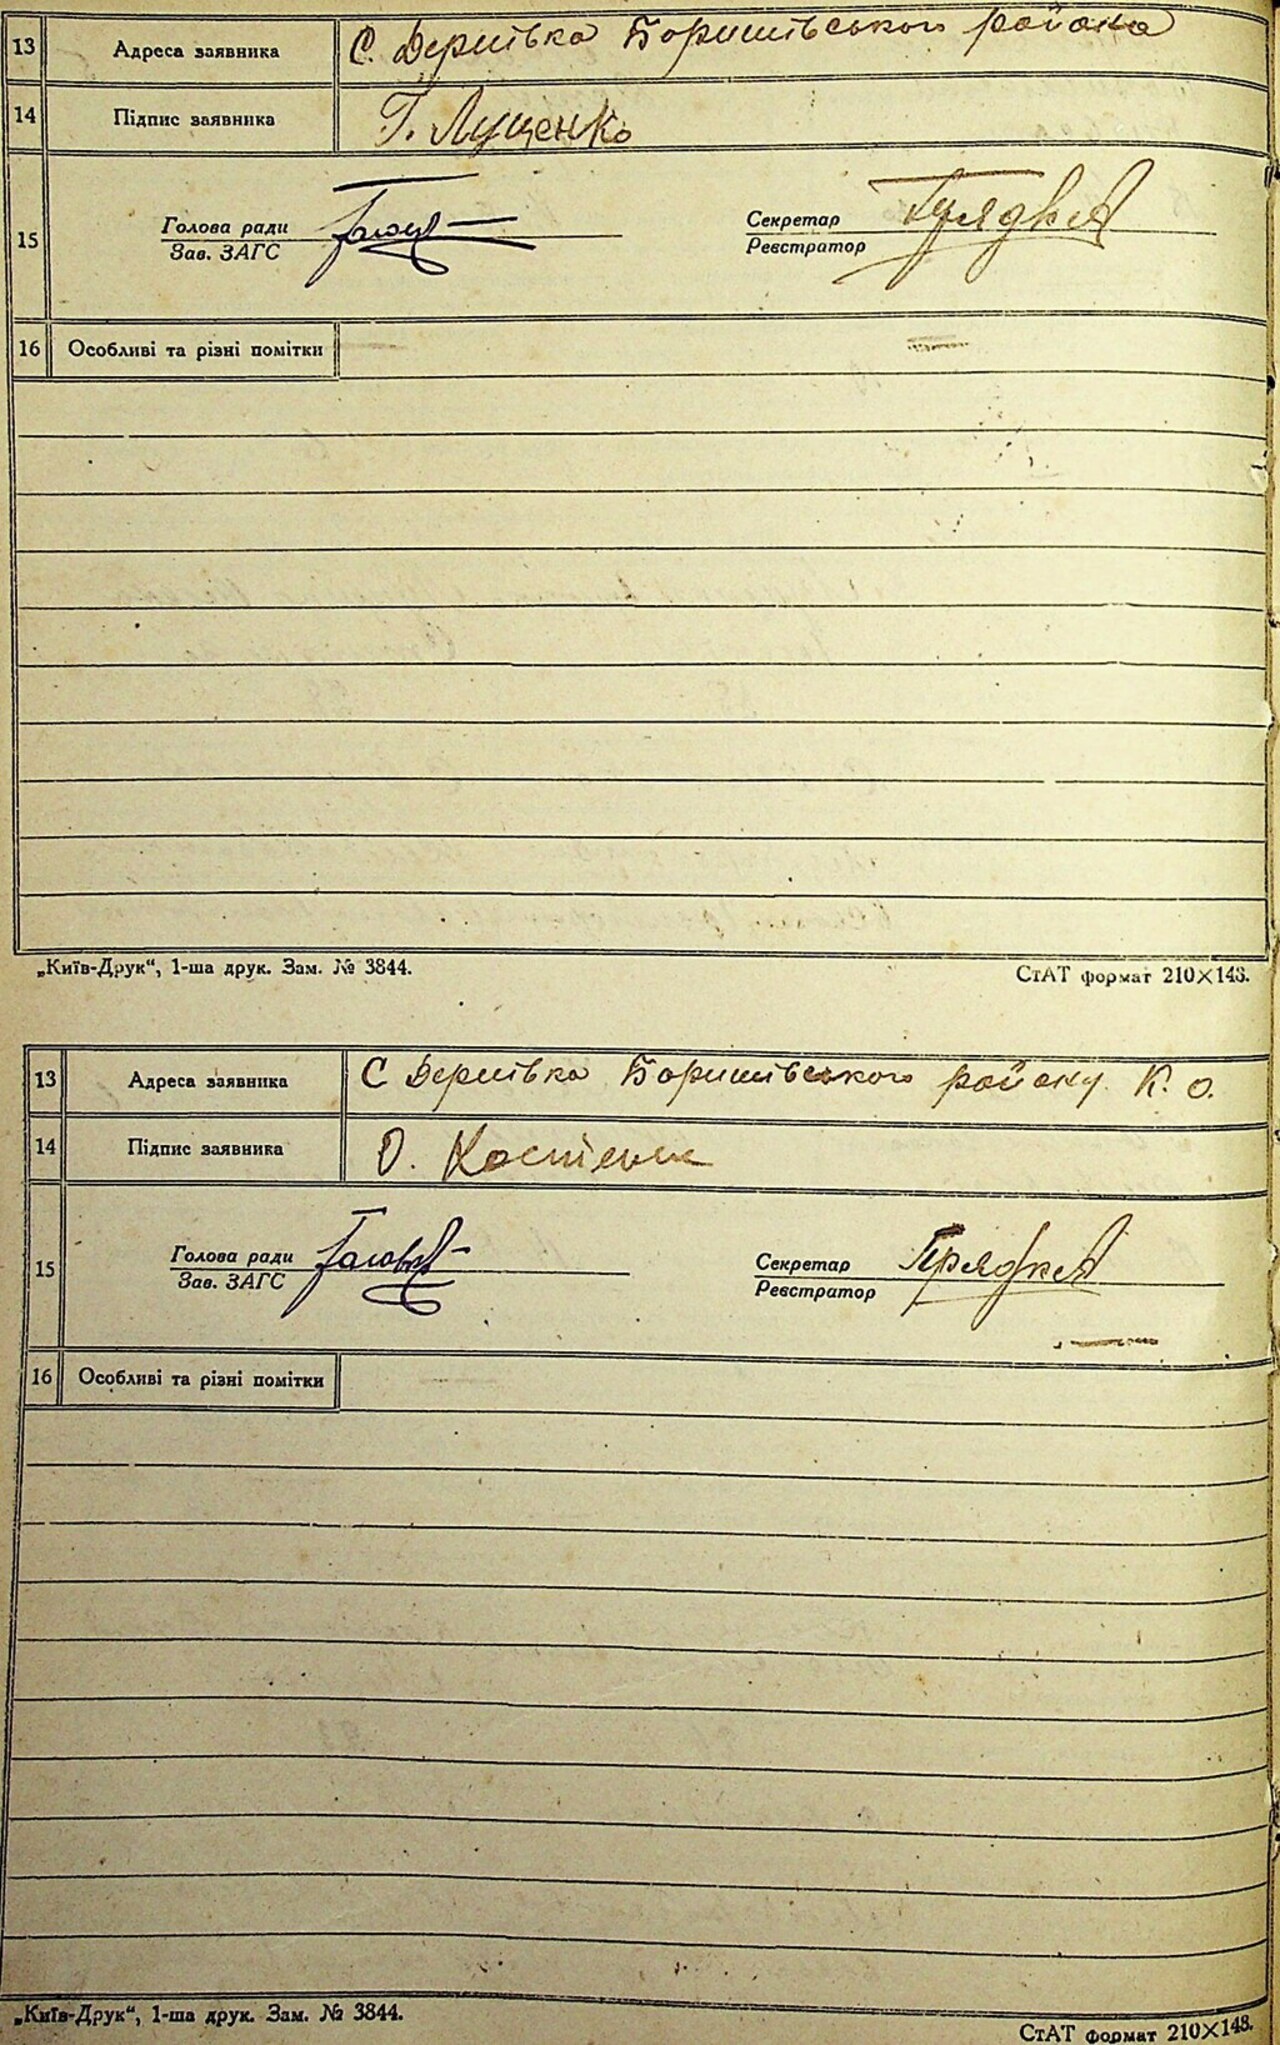 13 Адреса заявника С. Дернівка Баришівського района
14 Підпис заявника Г. Луценко
15 Голова ради Секретар
Зав. ЗАГС Реєстратор
16 Особливі та різні помітки
„Київ-Друк“, 1-ша друк. Зам. № 3844. СтАТ формат 210×148.
13 Адреса заявника С Дернівка Баришівського району К. О.
14 Підпис заявника О. Костенко
15 Голова ради Секретар
Зав. ЗАГС Реєстратор
16 Особливі та різні помітки
„Київ-Друк“, 1-ша друк. Зам. № 3844. СтАТ формат 210×148.